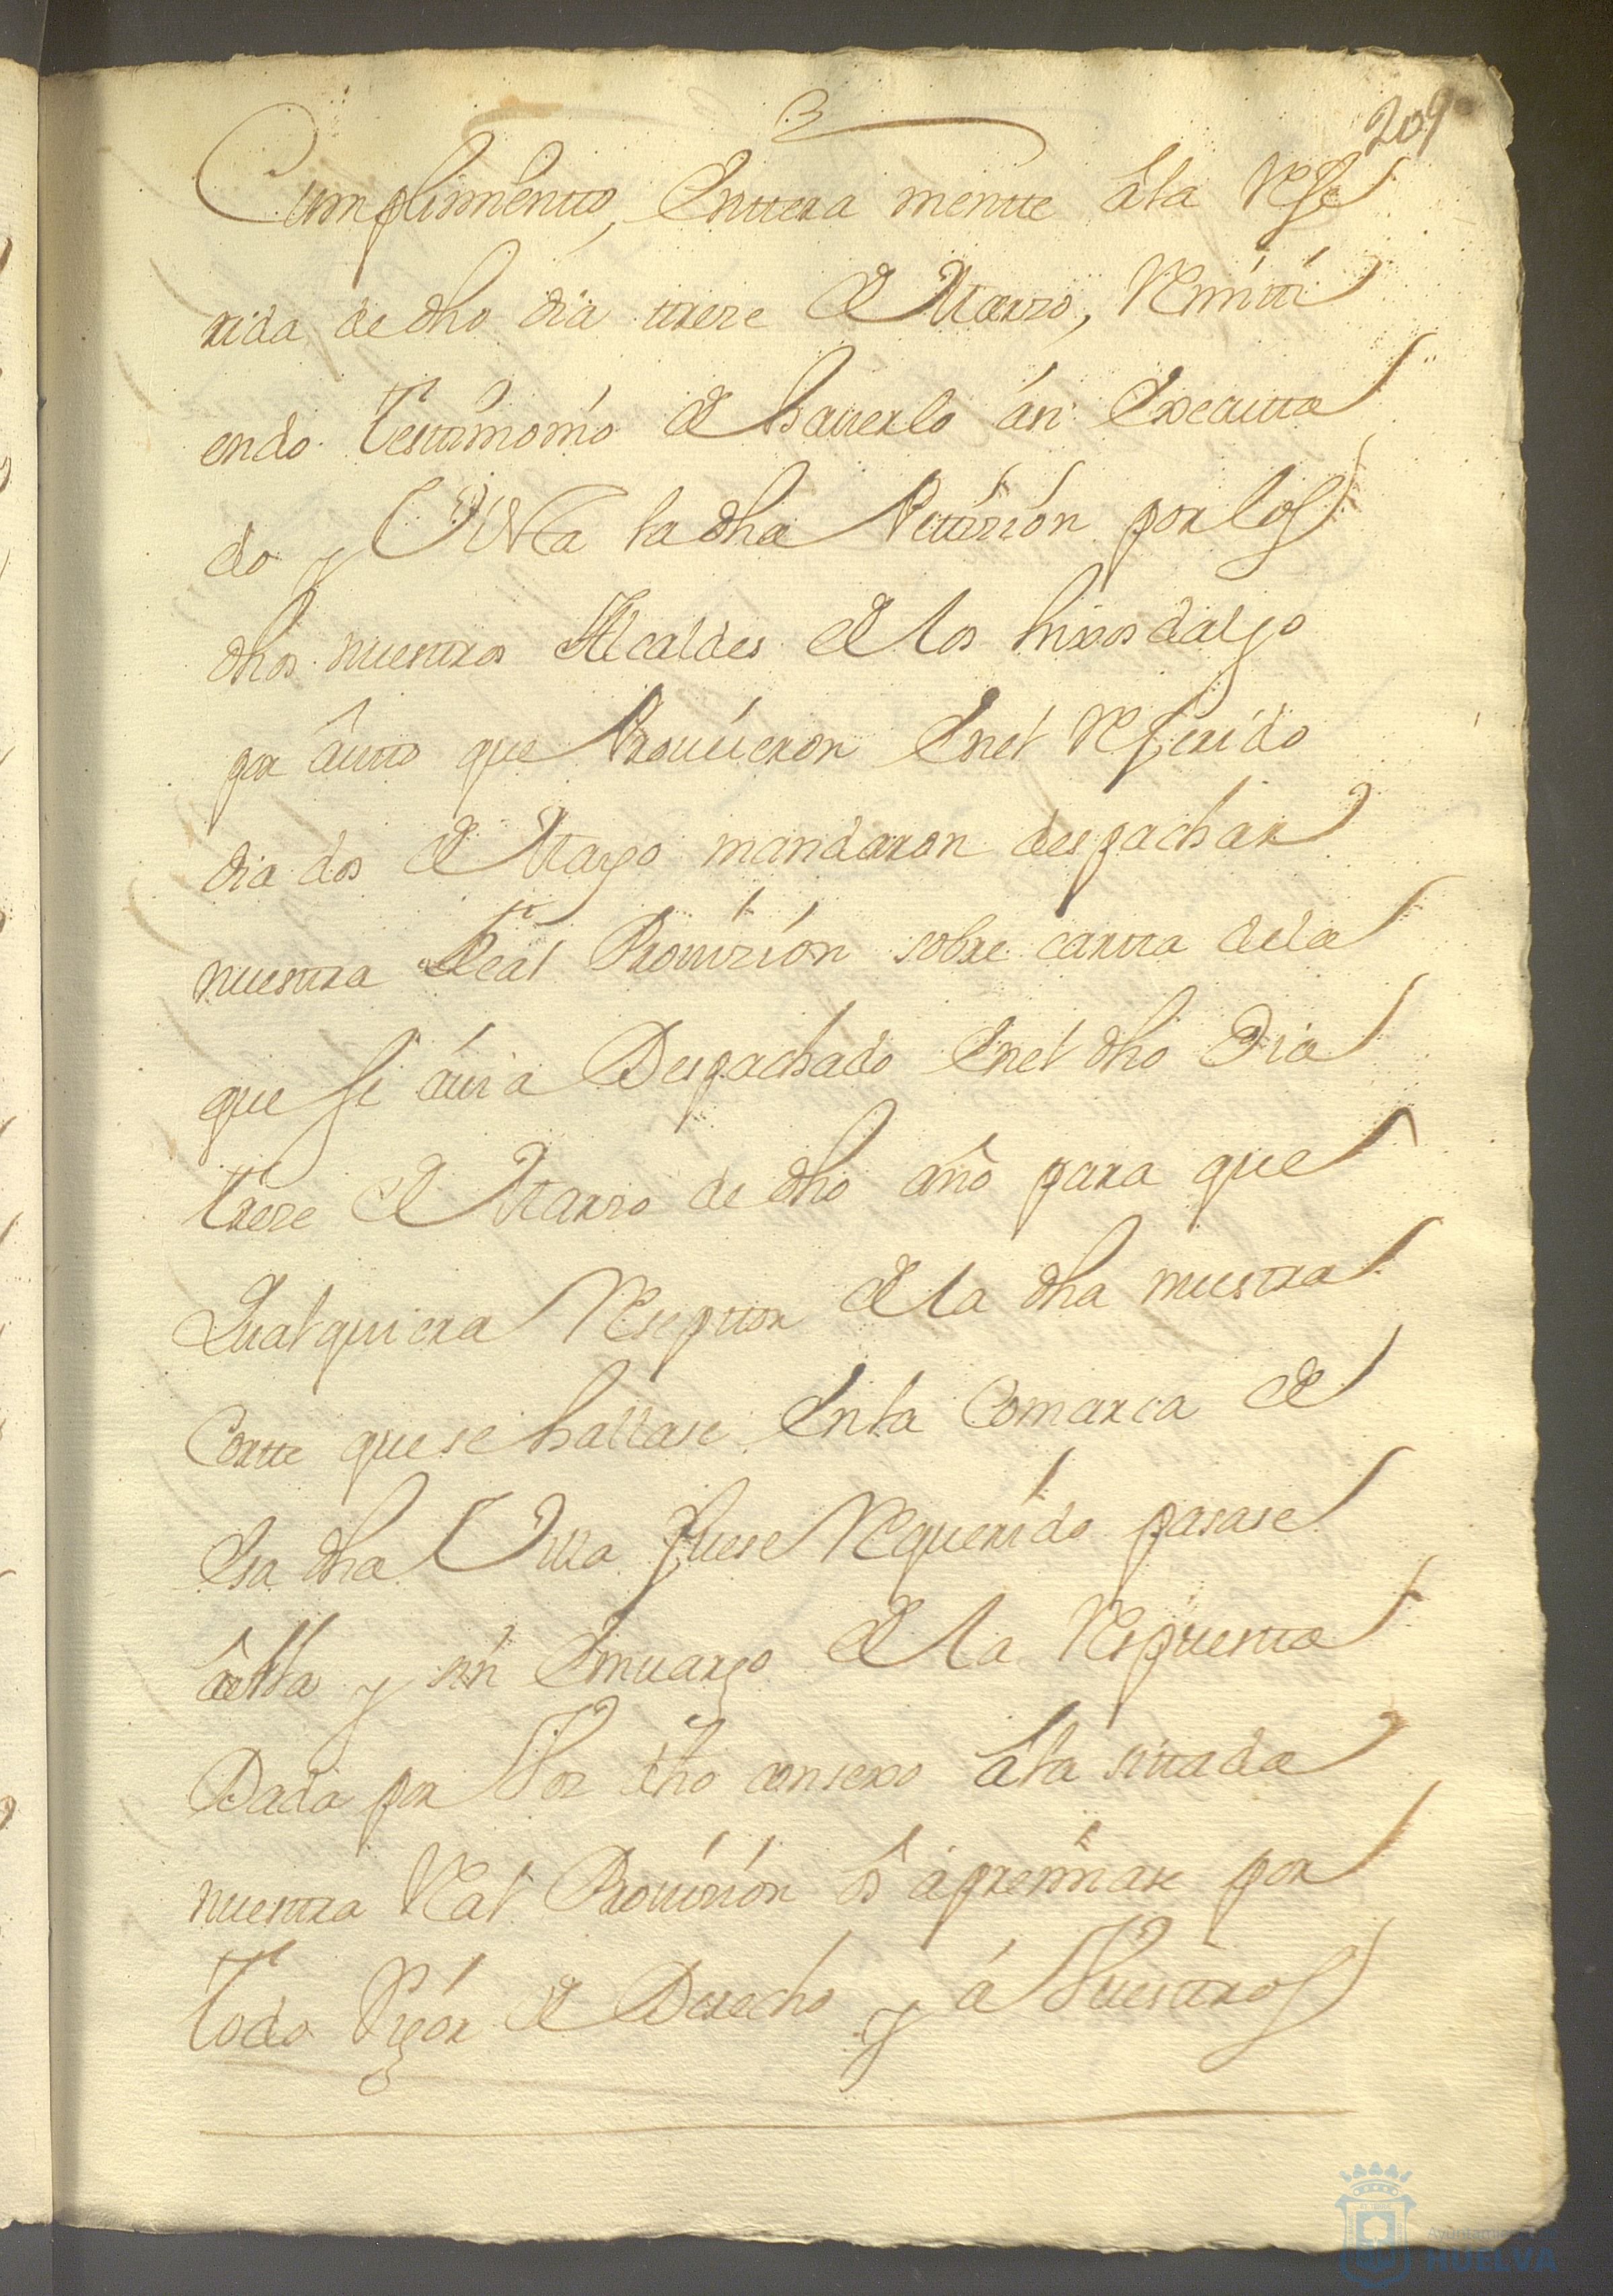 3
209
Cumplimentto, Entteramentte â la Refe
rida de dho dia treze de Marzo, Remitti
endo testtimonio de hauerlo ási Executta
do y Vista la dha Pettizión por los
dhos nuestros Alcaldes de los hixosdalgo
por âutto que Prouéieron Enel Referido
dia dos de Mayo mandaron despachar
nuestra Real Prouizión sobre cartta dela
que se áuia Despachado Enel dho Dia
treze de Marzo de dho año para que
Qualquiera Reseptor de la dha nuestra
Cortte que se hallase En la Comarca de
Esa dha Villa fuese Requerido pasase
â ella y sin Embargo de la Respuesta
Dada por Vos dho consexo â la sitada
nuestra Real Prouisión ôs ápremiase por
todo Rigór de Derecho y á Vuestros
Ayuntamiento de
HUELVA